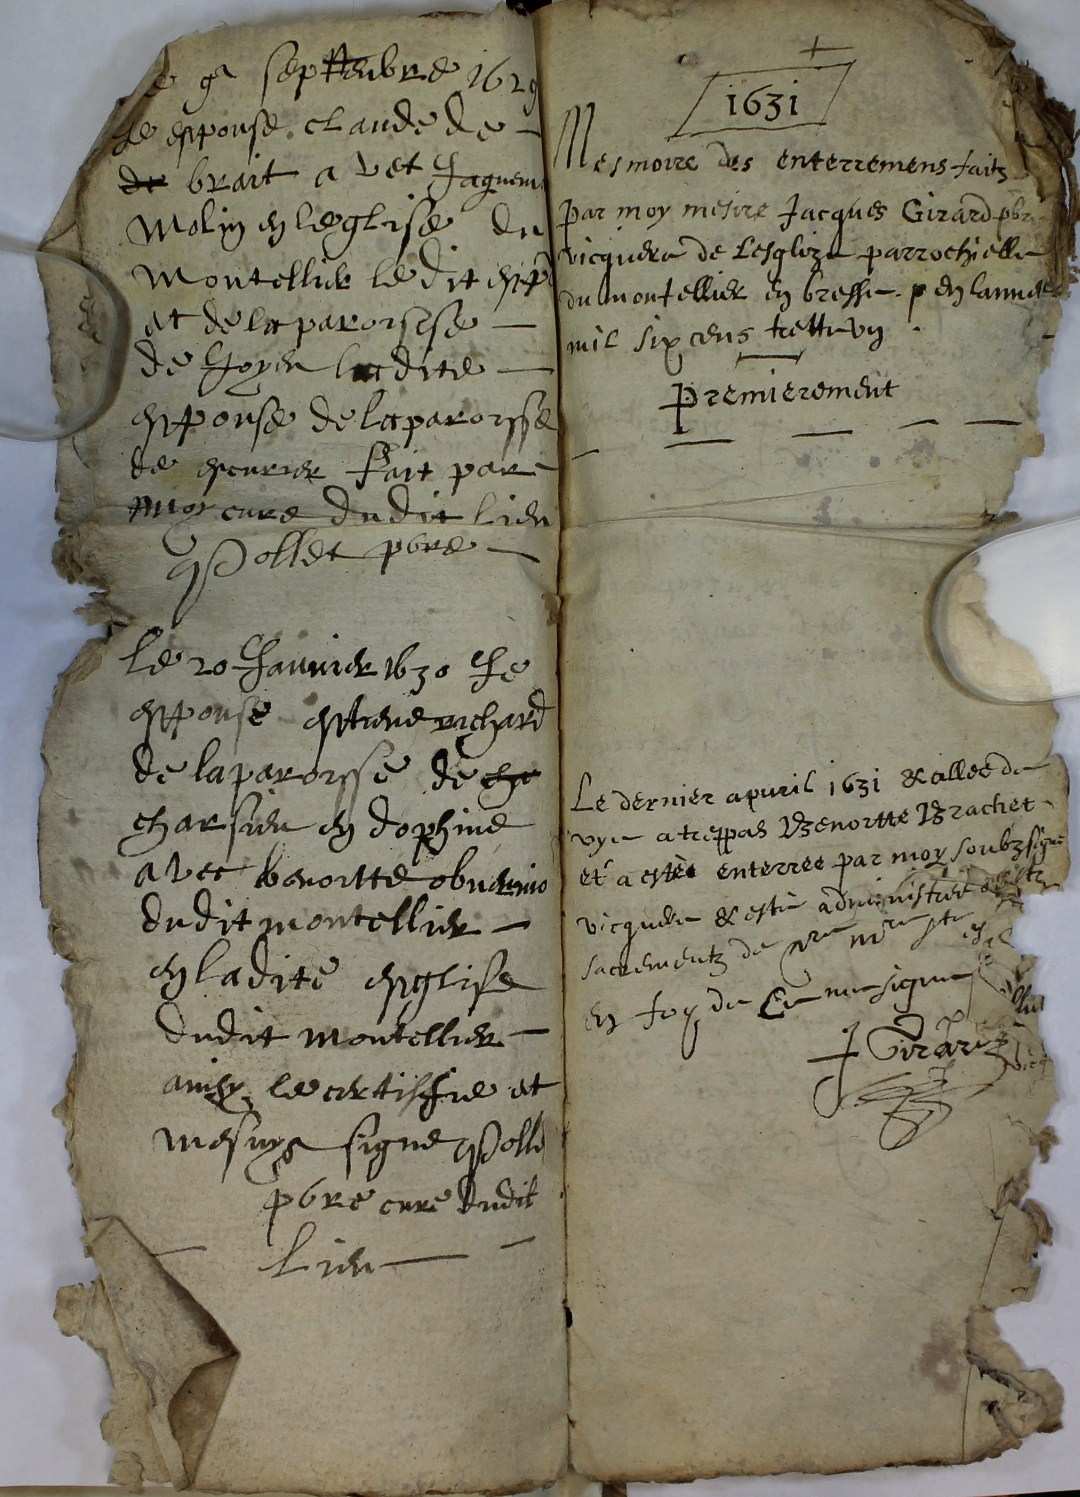 le 9e septenbre 1629
Je espouse claude de
de brait avec Jaquema
Molin en leglise du
Montellier ledit esp
at de la paroisse
de Joyeu la dite
espouse de la paroisse
de fait par
moy cure dudit lieu
Pollet pbre
Le 20 Janvier 1630 Je
espouse estiene richard
de la paroisse de cha
charsieu en dophine
avec benoitte
dudit montellier
en ladite esglise
dudit montellier
ainsy le certiffie et
me suys signe Polle
pbre cure dudit
Lieu
1631
Mesmoire des enterremens faitz
par moy mesire Jacques Girard pbr
vicquere de Lesglize parrochielle
du montellier en bresse p en lannee
mil six cens trette ung
Premierement
Le dernier apuril 1631 & allee de
vye a trespas Benoitte Brachet
et a estée enterree par moy soubzsigne
vicquere & esté administrée
sacrementz de nre mere ste
en foy de ce me signe
Girard